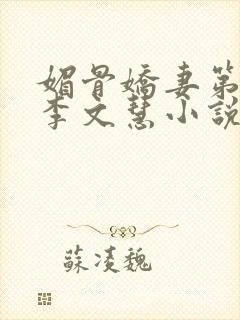 媚骨嬌妻第
李文慧小說
蘇淩魏